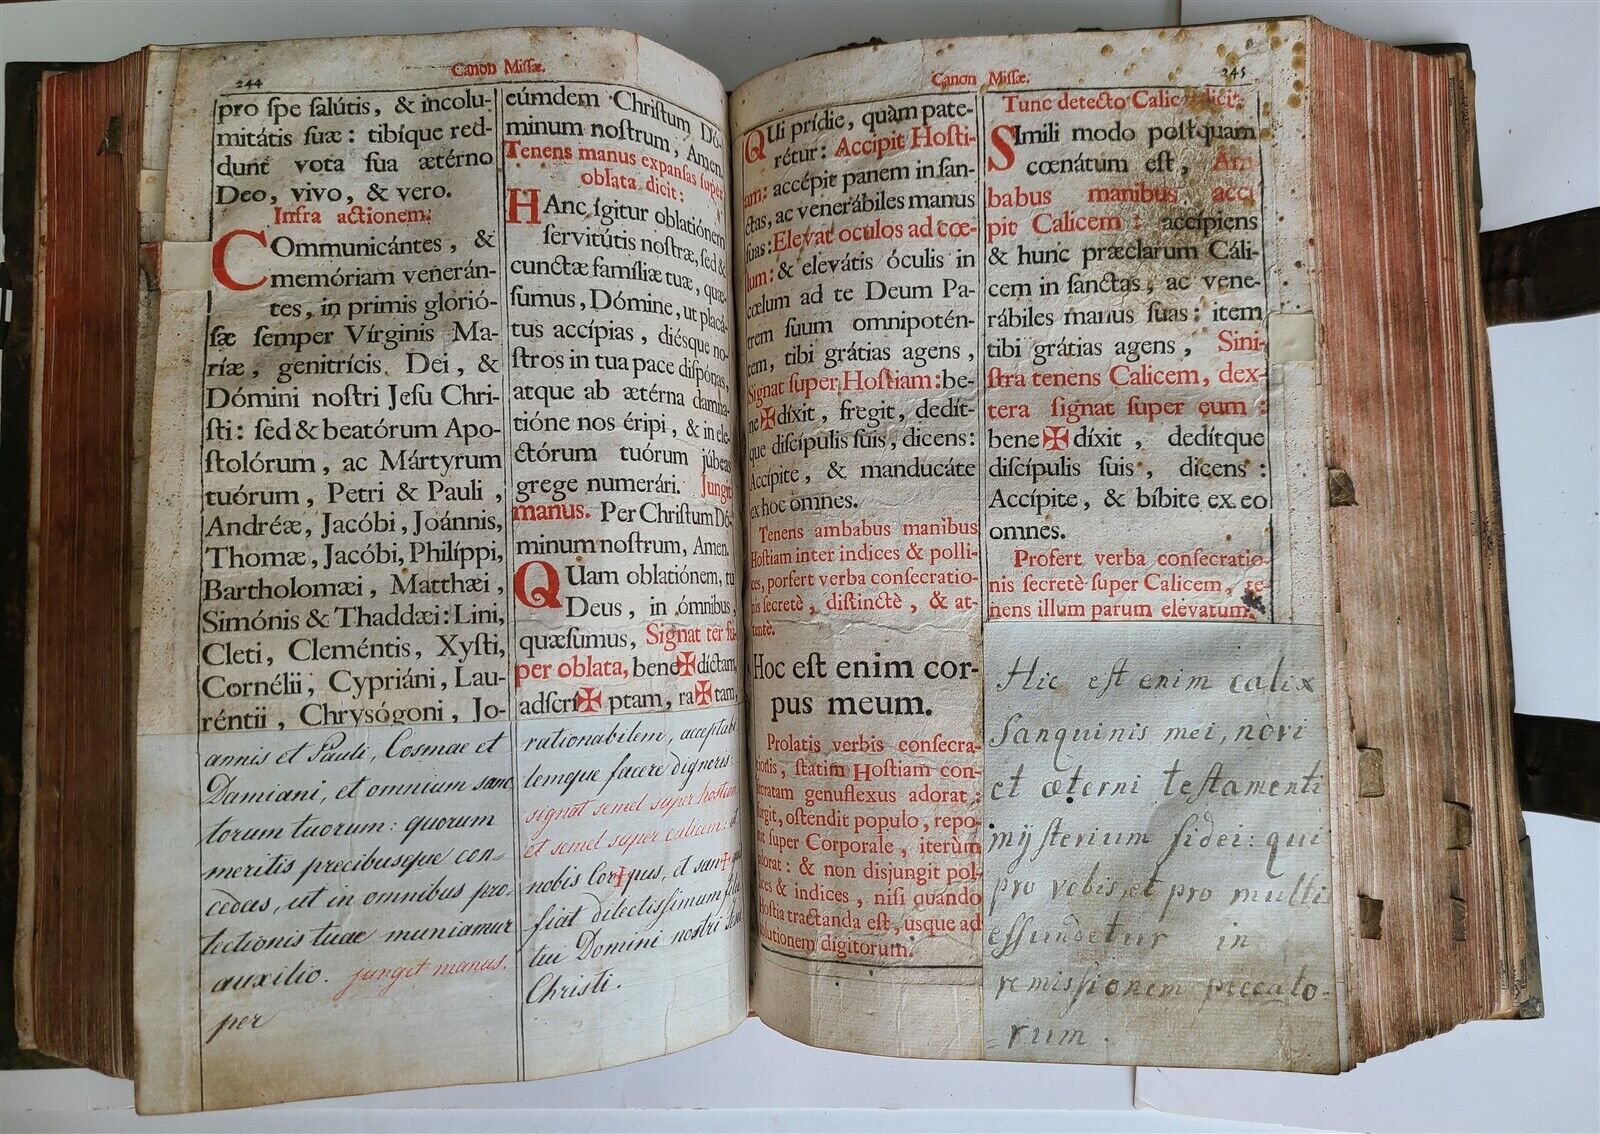 244
Canon Missæ.
pro spe salútis, & incolu-
mitátis suæ: tibíque red-
dunt vota sua ætérno
Deo, vivo, & vero.
Infra actionem.
COmmunicántes, &
memóriam venerán-
tes, in primis glorió-
sæ semper Vírginis Ma-
ríæ, genitrícis Dei, &
Dómini nostri Jesu Chri-
sti: sed & beatórum Apo-
stolórum, ac Mártyrum
tuórum, Petri & Pauli,
Andréæ, Jacóbi, Joánnis,
Thomæ, Jacóbi, Philíppi,
Bartholomæi, Matthæi,
Simónis & Thaddæi: Lini,
Cleti, Cleméntis, Xysti,
Cornélii, Cypriáni, Lau-
réntii, Chrysógoni, Jo-
annis et Pauli, Cosmae et
Damiani, et omnium sanc
torum tuorum: quorum
meritis precibusque con-
cedas, ut in omnibus pro-
tectionis tuae muniamur
auxilio. jungit manus.
per
eúmdem Christum Dó-
minum nostrum, Amen.
Tenens manus expansas super
oblata dicit:
HAnc ígitur oblatiónem
servitútis nostræ, sed &
cunctæ famíliæ tuæ, quæ-
sumus, Dómine, ut placá-
tus accípias, diésque no-
stros in tua pace dispónas,
atque ab ætérna damna-
tióne nos éripi, & in ele-
ctórum tuórum júbeas
grege numerári. Jungit
manus. Per Christum Dó-
minum nostrum, Amen.
QUam oblatiónem, tu
Deus, in ómnibus,
quæsumus, Signat ter su-
per oblata, bene✠díctam,
adscrí✠ptam, ra✠tam,
rationabilem, acceptabi
lemque facere digneris:
signat semel super hostiam
et semel super calicem: ut
nobis Cor+pus, et san+guis
fiat dilectissimum filii
tui Domini nostri Jesu
Christi.
Canon Missæ.
245
QUi prídie, quàm pate-
rétur: Accipit Hosti-
am: accépit panem in san-
ctas, ac venerábiles manus
suas: Elevat oculos ad cœ-
lum: & elevátis óculis in
cœlum ad te Deum Pa-
trem suum omnipotén-
tem, tibi grátias agens,
Signat super Hostiam: be-
ne✠díxit, fregit, dedít-
que discípulis suis, dicens:
Accípite, & manducáte
ex hoc omnes.
Tenens ambabus manibus
Hostiam inter indices & polli-
ces, porfert verba consecratio-
nis secretè, distinctè, & at-
tentè.
Hoc est enim cor-
pus meum.
Prolatis verbis consecra-
tionis, statim Hostiam con-
secratam genuflexus adorat:
surgit, ostendit populo, repo-
nit super Corporale, iterùm
adorat: & non disjungit pol-
lices & indices, nisi quando
Hostia tractanda est, usque ad
ablutionem digitorum.
Tunc detecto Calice dicit:
SImili modo postquam
cœnátum est, Am-
babus manibus acci
pit Calicem: accípiens
& hunc præclarum Cáli-
cem in sanctas, ac vene-
rábiles manus suas: item
tibi grátias agens, Sini-
stra tenens Calicem, dex-
tera signat super eum:
bene✠díxit, dedítque
discípulis suis, dicens:
Accípite, & bíbite ex eo
omnes.
Profert verba consecratio-
nis secretè super Calicem, te-
nens illum parum elevatum.
Hic est enim calix
Sanquinis mei, novi
et æterni testamenti
mysterium fidei: qui
pro vobis, et pro multi
effundetur in
remissionem peccato-
=rum.